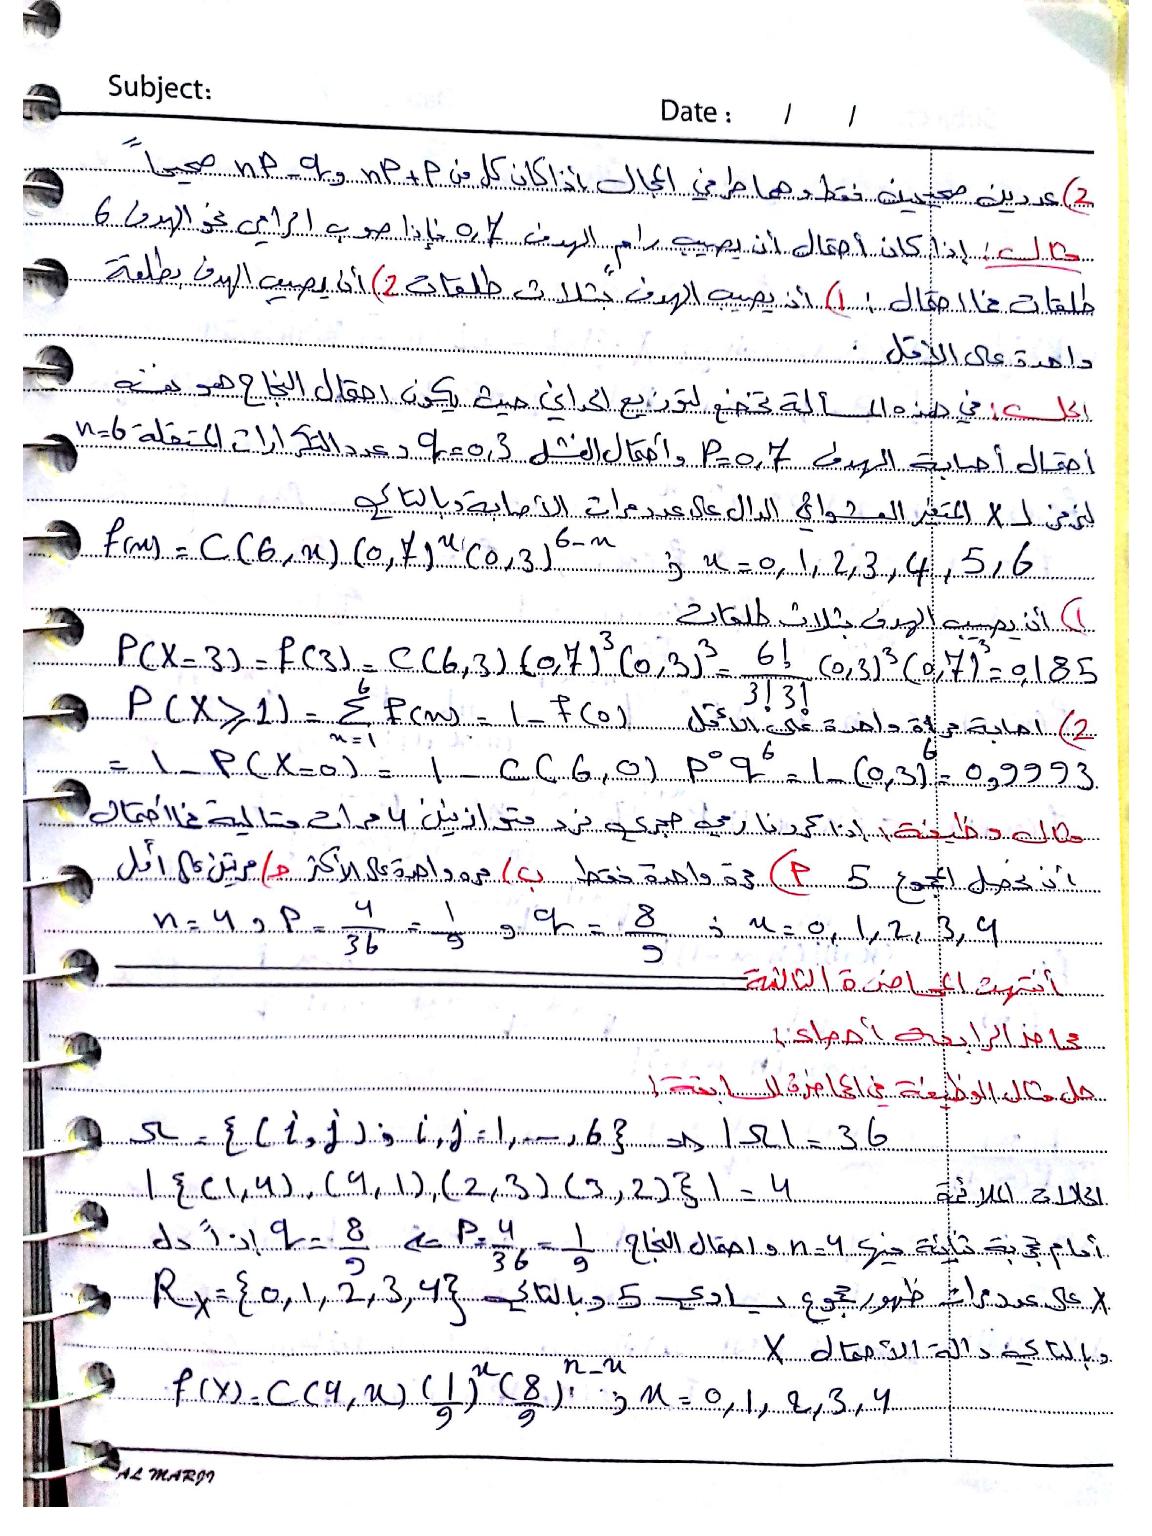 Subject:
Date : / /
2) عددين صحيحين فقط وهما طرفي المجال إذا كان كل من nP+P و nP-q صحيحاً
مثال: إذا كان احتمال أن يصيب رام الهدف 0,7 فإذا صوب الرامي نحو الهدف 6
طلقات فما احتمال: 1) أن يصيب الهدف بثلاث طلقات 2) أن يصيب الهدف بطلقة
واحدة على الأقل.
الحل: في هذه المسألة تخضع لتوزيع الحداني حيث يكون احتمال النجاح هو نفسه
احتمال أصابة الهدف P=0,7 واحتمال الفشل q=0,3 وعدد التكرارات المستقلة n=6
لنرمز لـ X المتغير العشوائي الدال على عدد مرات الأصابة وبالتالي
f(x) = C(6,x) (0,7)^x (0,3)^{6-x} ; x=0,1,2,3,4,5,6
1) أن يصيب الهدف بثلاث طلقات
P(X=3) = f(3) = C(6,3) (0,7)^3 (0,3)^3 = \frac{6!}{3!3!} (0,3)^3 (0,7)^3 = 0,185
2) اصابة مرة واحدة على الأقل P(X≥1) = \sum_{x=1}^{6} f(x) = 1-f(0)
= 1 - P(X=0) = 1 - C(6,0) P^0 q^6 = 1-(0,3)^6 = 0,9993
مثال وظيفة: إذا كررنا رمي حجري نرد متوازنين 4 مرات متتالية فما احتمال
أن نحصل المجموع 5 P) مرة واحدة فقط ب) مرة واحدة على الأكثر د) مرتين على الأقل
n=4 و P = \frac{4}{36} = \frac{1}{9} و q = \frac{8}{9} ; x=0,1,2,3,4
أنتهت المحاضرة الثالثة
محاضرة الرابعة أحصاء:
حل مثال الوظيفة في المحاضرة السابقة:
Ω = {(i,j) ; i,j=1,...,6} => |Ω| = 36
|{(1,4),(4,1),(2,3)(3,2)}| = 4
أمام تجربة ثنائية حيث n=4 و احتمال النجاح P=\frac{4}{36}=\frac{1}{9} q=\frac{8}{9} إذاً دل
X على عدد مرات ظهور مجموع يساوي 5 وبالتالي R_X={0,1,2,3,4}
وبالتالي دالة الأحتمال X
f(X) = C(4,x) (\frac{1}{9})^x (\frac{8}{9})^{n-x} ; x=0,1,2,3,4
AL MARJI